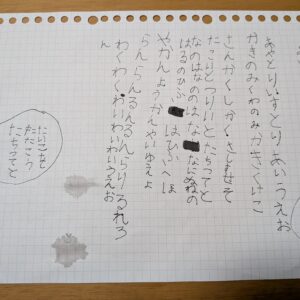 あやとりいすとりあいうえお
かきのみくわのみかきくけこ
さんかくしかくさしすせそ
たこりとつりいとたちつてと
なのはなのはな なにぬねの
はるのひふ はひふへほ
やかんようかんやいゆえよ
らんらんるんるんらりるれろ
わくわくわいわいわいうえお
ん
たいこをたたこう
たちつてと